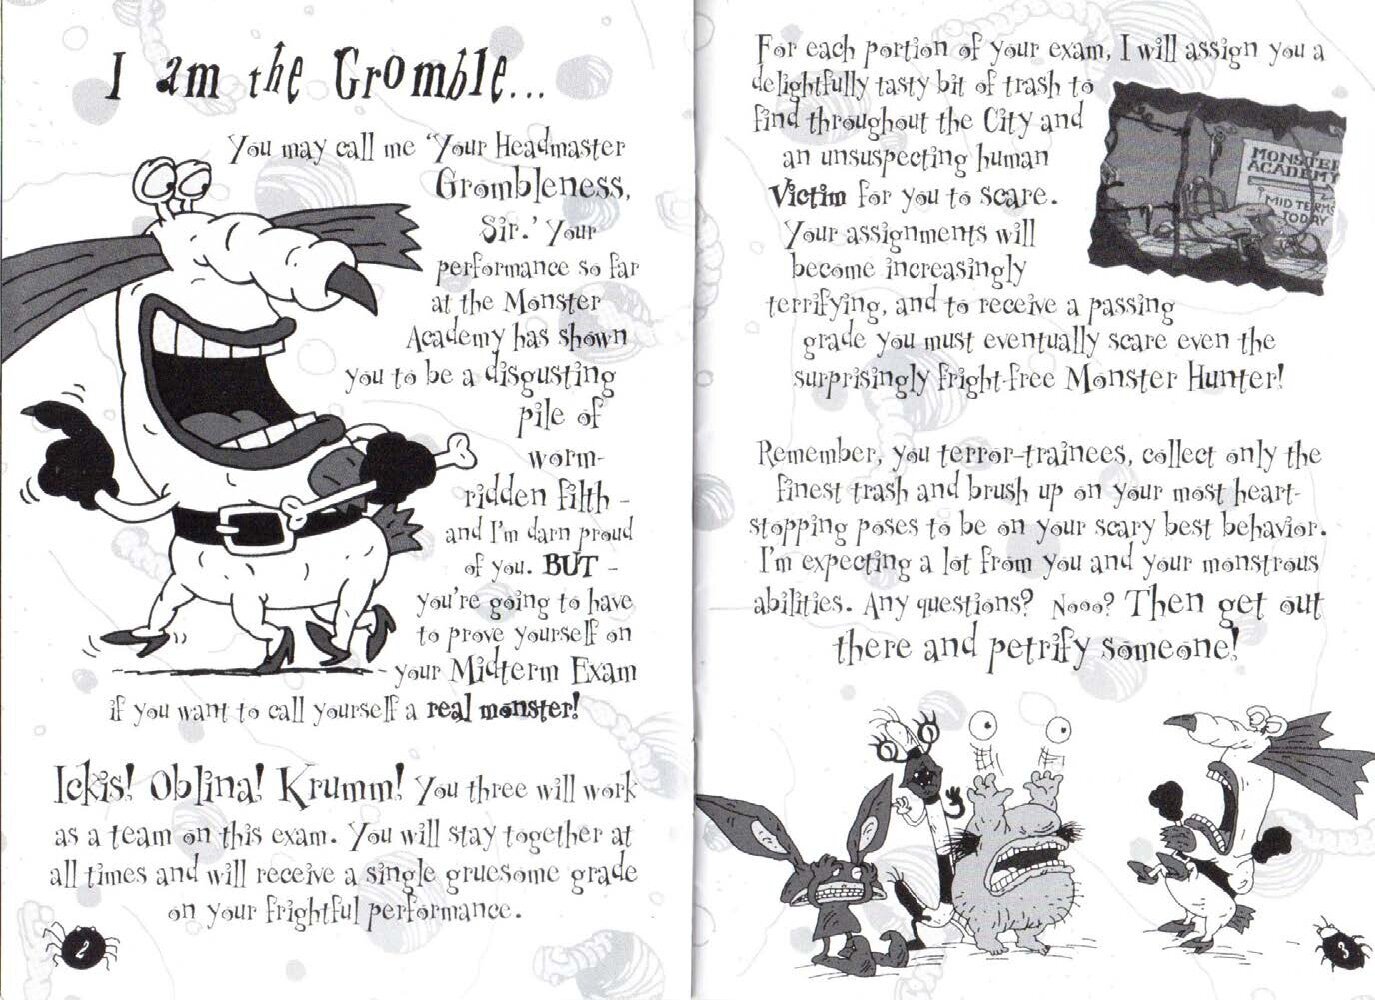 I am the Gromble...
You may call me "Your Headmaster
Grombleness,
Sir.' Your
performance so far
at the Monster
Academy has shown
you to be a disgusting
pile of
worm-
ridden filth -
and I'm darn proud
of you. BUT -
you're going to have
to prove yourself on
your Midterm Exam
if you want to call yourself a real monster!
Ickis! Oblina! Krumm! You three will work
as a team on this exam. You will stay together at
all times and will receive a single gruesome grade
on your frightful performance.
2
For each portion of your exam, I will assign you a
delightfully tasty bit of trash to
find throughout the City and
an unsuspecting human
Victim for you to scare.
Your assignments will
become increasingly
terrifying, and to receive a passing
grade you must eventually scare even the
surprisingly fright-free Monster Hunter!
MONSTER
ACADEMY
MID TERMS
TODAY
Remember, you terror-trainees, collect only the
finest trash and brush up on your most heart-
stopping poses to be on your scary best behavior.
I'm expecting a lot from you and your monstrous
abilities. Any questions? Nooo? Then get out
there and petrify someone!
3